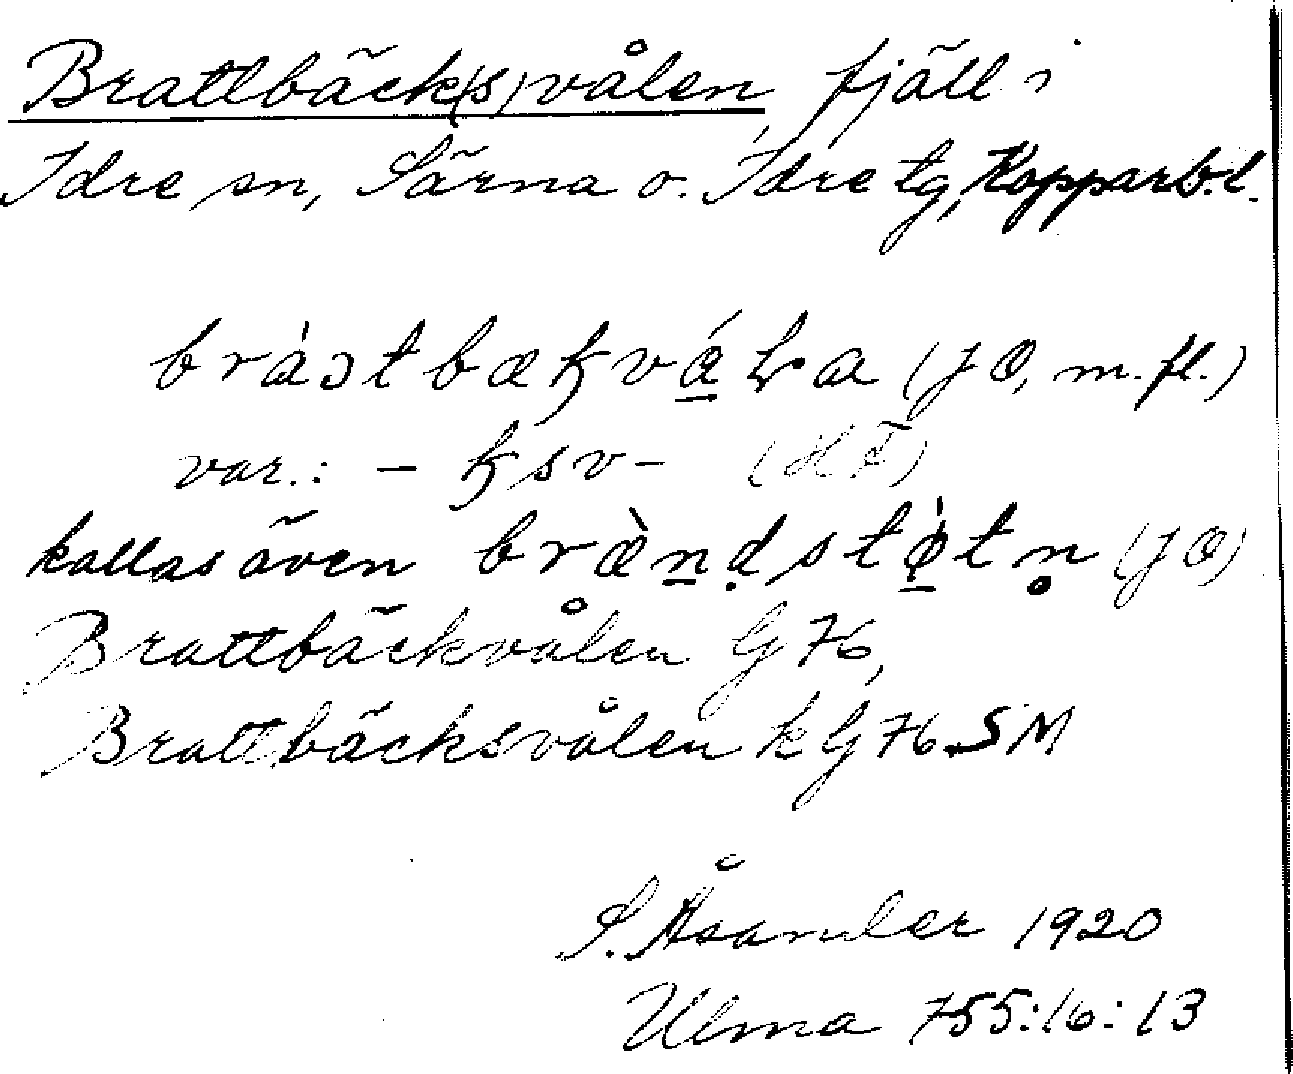 Brattbäck(s)vålen, fjäll i
Idre sn, Särna o. Idre tg, Kopparb. l.
(JØ, m. fl.)
var.: - ꜧsv- (HF)
kallas även (JØ)
Brattbäckvålen G 76,
Brattbäcksvålen k G 76 SM
S. Åsander 1920
Ulma 755:16:13